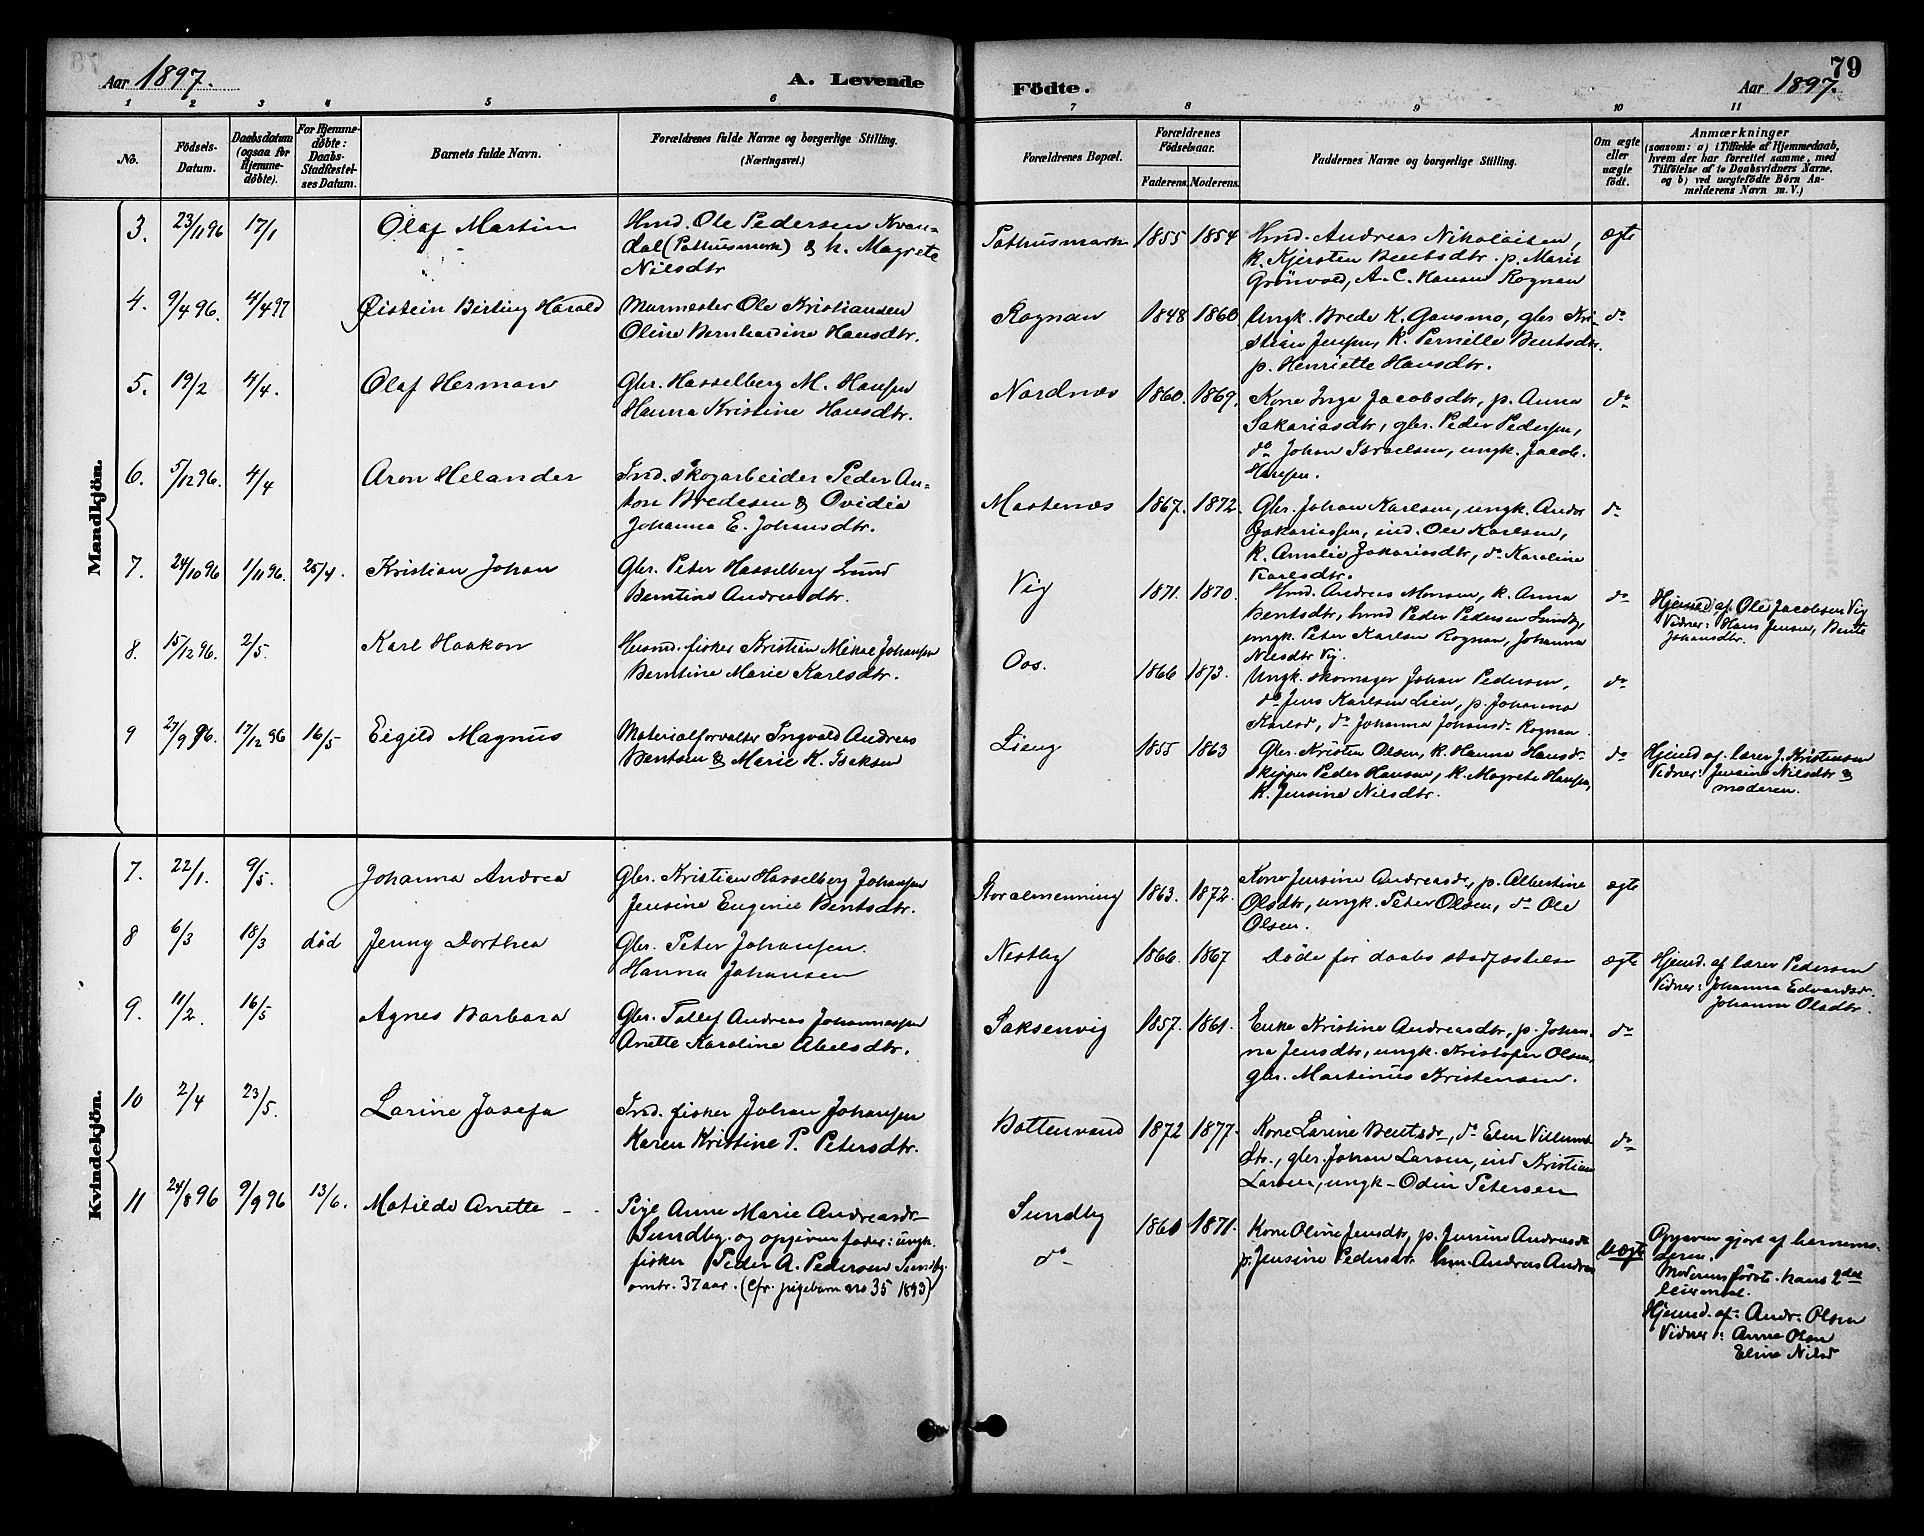 Aar 1897.
A. Levende
Födte.
Aar 1897.
79
1 2 3 4 5 6 7 8 9 10 11
No.
Födsels-
Datum.
Daabsdatum
(ogsaa for
Hjemme-
döbte).
For Hjemme-
döbte:
Daabs-
Stadfæstel-
ses Datum.
Barnets fulde Navn.
Forældrenes fulde Navne og borgerlige Stilling.
(Næringsvei.)
Forældrenes Bopæl.
Forældrenes
Födselsaar.
Faderens. Moderens.
Faddernes Navne og borgerlige Stilling.
Om ægte
eller
uægte
födt.
Anmærkninger
(saasom: a) i Tilfælde af Hjemmedaab,
hvem der har forrettet samme, med
Tilföielse af to Daabsvidners Navne,
og b) ved uægtefödte Börn An-
melderens Navn m. V.)
Mandkjön.
3. 23/11 96 17/1 Olaf Martin
Hmd. Ole Pedersen Kvan-
dal (Pothusmark) & h. Magrete
Nilsdtr
Pothusmark 1855 1854
Hmd. Andreas Nikolaisen,
k. Kjersten Bentsdtr. p. Marit
Grönvold, A. C. Hansen Rognan
ægte
4. 9/4 96. 4/4 97 Øistein Birting Harald
Murmester Ole Kristiansen
Oline Bernhardine Hansdtr.
Rognan 1848 1860
Ungk. Brede K. Gausmo, gbr. Kri-
stian Jensen, k. Pernille Bentsdtr.
p. Henriette Hansdtr.
do
5. 19/2 4/4. Olaf Herman
Gbr. Hasselberg M. Hansen
Hanna Kristine Hansdtr.
Nordnæs 1860. 1869.
Kone Inge Jacobsdtr, p. Anna
Sakariasdtr, gbr. Peder Pedersen,
do Johan Israelsen, ungk. Jacob.
Hansen.
do
6. 5/12 96. 4/4 Aron Helander
Ind. skogarbeider Peder An-
ton Bredesen & Ovidia
Johanna E. Johansdtr.
Mastenæs 1867. 1872.
Gbr. Johan Karlsen, ungk. Andr
Zakariassen, ind. Ole Karlsen,
k. Amalie Zakariasdtr, do Karoline
Karlsdtr.
do
7. 24/10 96 1/11 96. 25/4. Kristian Johan
Gbr. Peter Hasselberg Lund
Berntine Andreasdtr.
Vig 1871. 1870.
Hmd. Andreas Monsen, k. Anna
Bentsdtr, hmd Peder Pedersen Sundby,
ungk. Peter Karlsen Rognan, Johanna
Nilsdtr Vig.
do
Hjemd af. Ole Jacobsen Vig
Vidner: Hans Jensen, Bente
Johansdtr.
8. 15/12 96. 2/5. Karl Haakon
Husmd. fisker Kristian Mikal Johansen
Berntine Marie Karlsdtr.
Oos. 1866 1873.
Ungk. skomager Johan Pedersen,
do Jens Karlsen Lien, p. Johanna
Karlsd, do Johanna Johansd. Rognan
do
9 27/9 96. 17/12 96 16/5 Eigild Magnus
Materialforvalter Ingvald Andreas
Bentsen & Marie K. Isaksen
Lieng 1855 1863
Gbr. Kristen Olsen, k. Hanna Hansdr
skipper Peder Hansen, k. Magrete Hansen,
k. Jensine Nilsdtr.
do
Hjemd af. lærer J. Kristensen
Vidner: Jensine Nilsdtr &
moderen.
Kvindekjön.
7. 22/1. 9/5. Johanna Andrea
Gbr. Kristian Hasselberg Johansen
Jensine Eugenie Bentsdtr.
Storalmenning 1863. 1872.
Kone Jensine Andreasdr, p. Albertine
Olsdtr, ungk. Peter Olsen, do Ole
Olsen.
ægte
8 6/3 18/3 død Jenny Dorthea
Gbr. Peter Johansen.
Hanna Johansen
Nestby 1866. 1867
Døde før daabs stadfæstelse
ægte
Hjemd. af lærer Pedersen
Vidner: Johanna Edvardsdr.
Johanna Olsdtr.
9. 11/2. 16/5 Agnes Barbara
Gbr. Tollef Andreas Johannessen
Anette Karoline Abelsdtr.
Saksenvig 1857. 1861.
Enke Kristine Andreasdtr, p. Johan-
na Jensdtr, ungk. Kristofer Olsen,
gbr. Martinus Kristensen.
do
10 2/4 23/5. Larine Josefa
Ind. fisker Johan Johansen
Karen Kristine P. Petersdtr.
Bottenvand 1872 1877.
Kone Larine Bentsdr, do Elen Villums
dtr., gbr. Johan Larsen, ind Kristian
Larsen, ungk- Odin Petersen
do
11 24/8 96 9/9 96 13/6. Matilde Anette
Pige Anne Marie Andreasdr
Sundby. og opgiven fader: ungk.
fisker Peder A. Pedersen Sundby.
omtr. 37 aar. (cfr. pigebarn no 35 1893)
Sundby
do
1860 1871.
Kone Oline Jensdtr, p. Jensine Andreasdr
p. Jensine Pedersdtr hm. Andreas Andrea
Uægte
Opgaven gjort af barnemo-
deren.
Moderens første. hans 2det
leiermaal.
Hjemd. af: Andr. Olsen
Vidner: Anne Olsen
Eline Nilsd